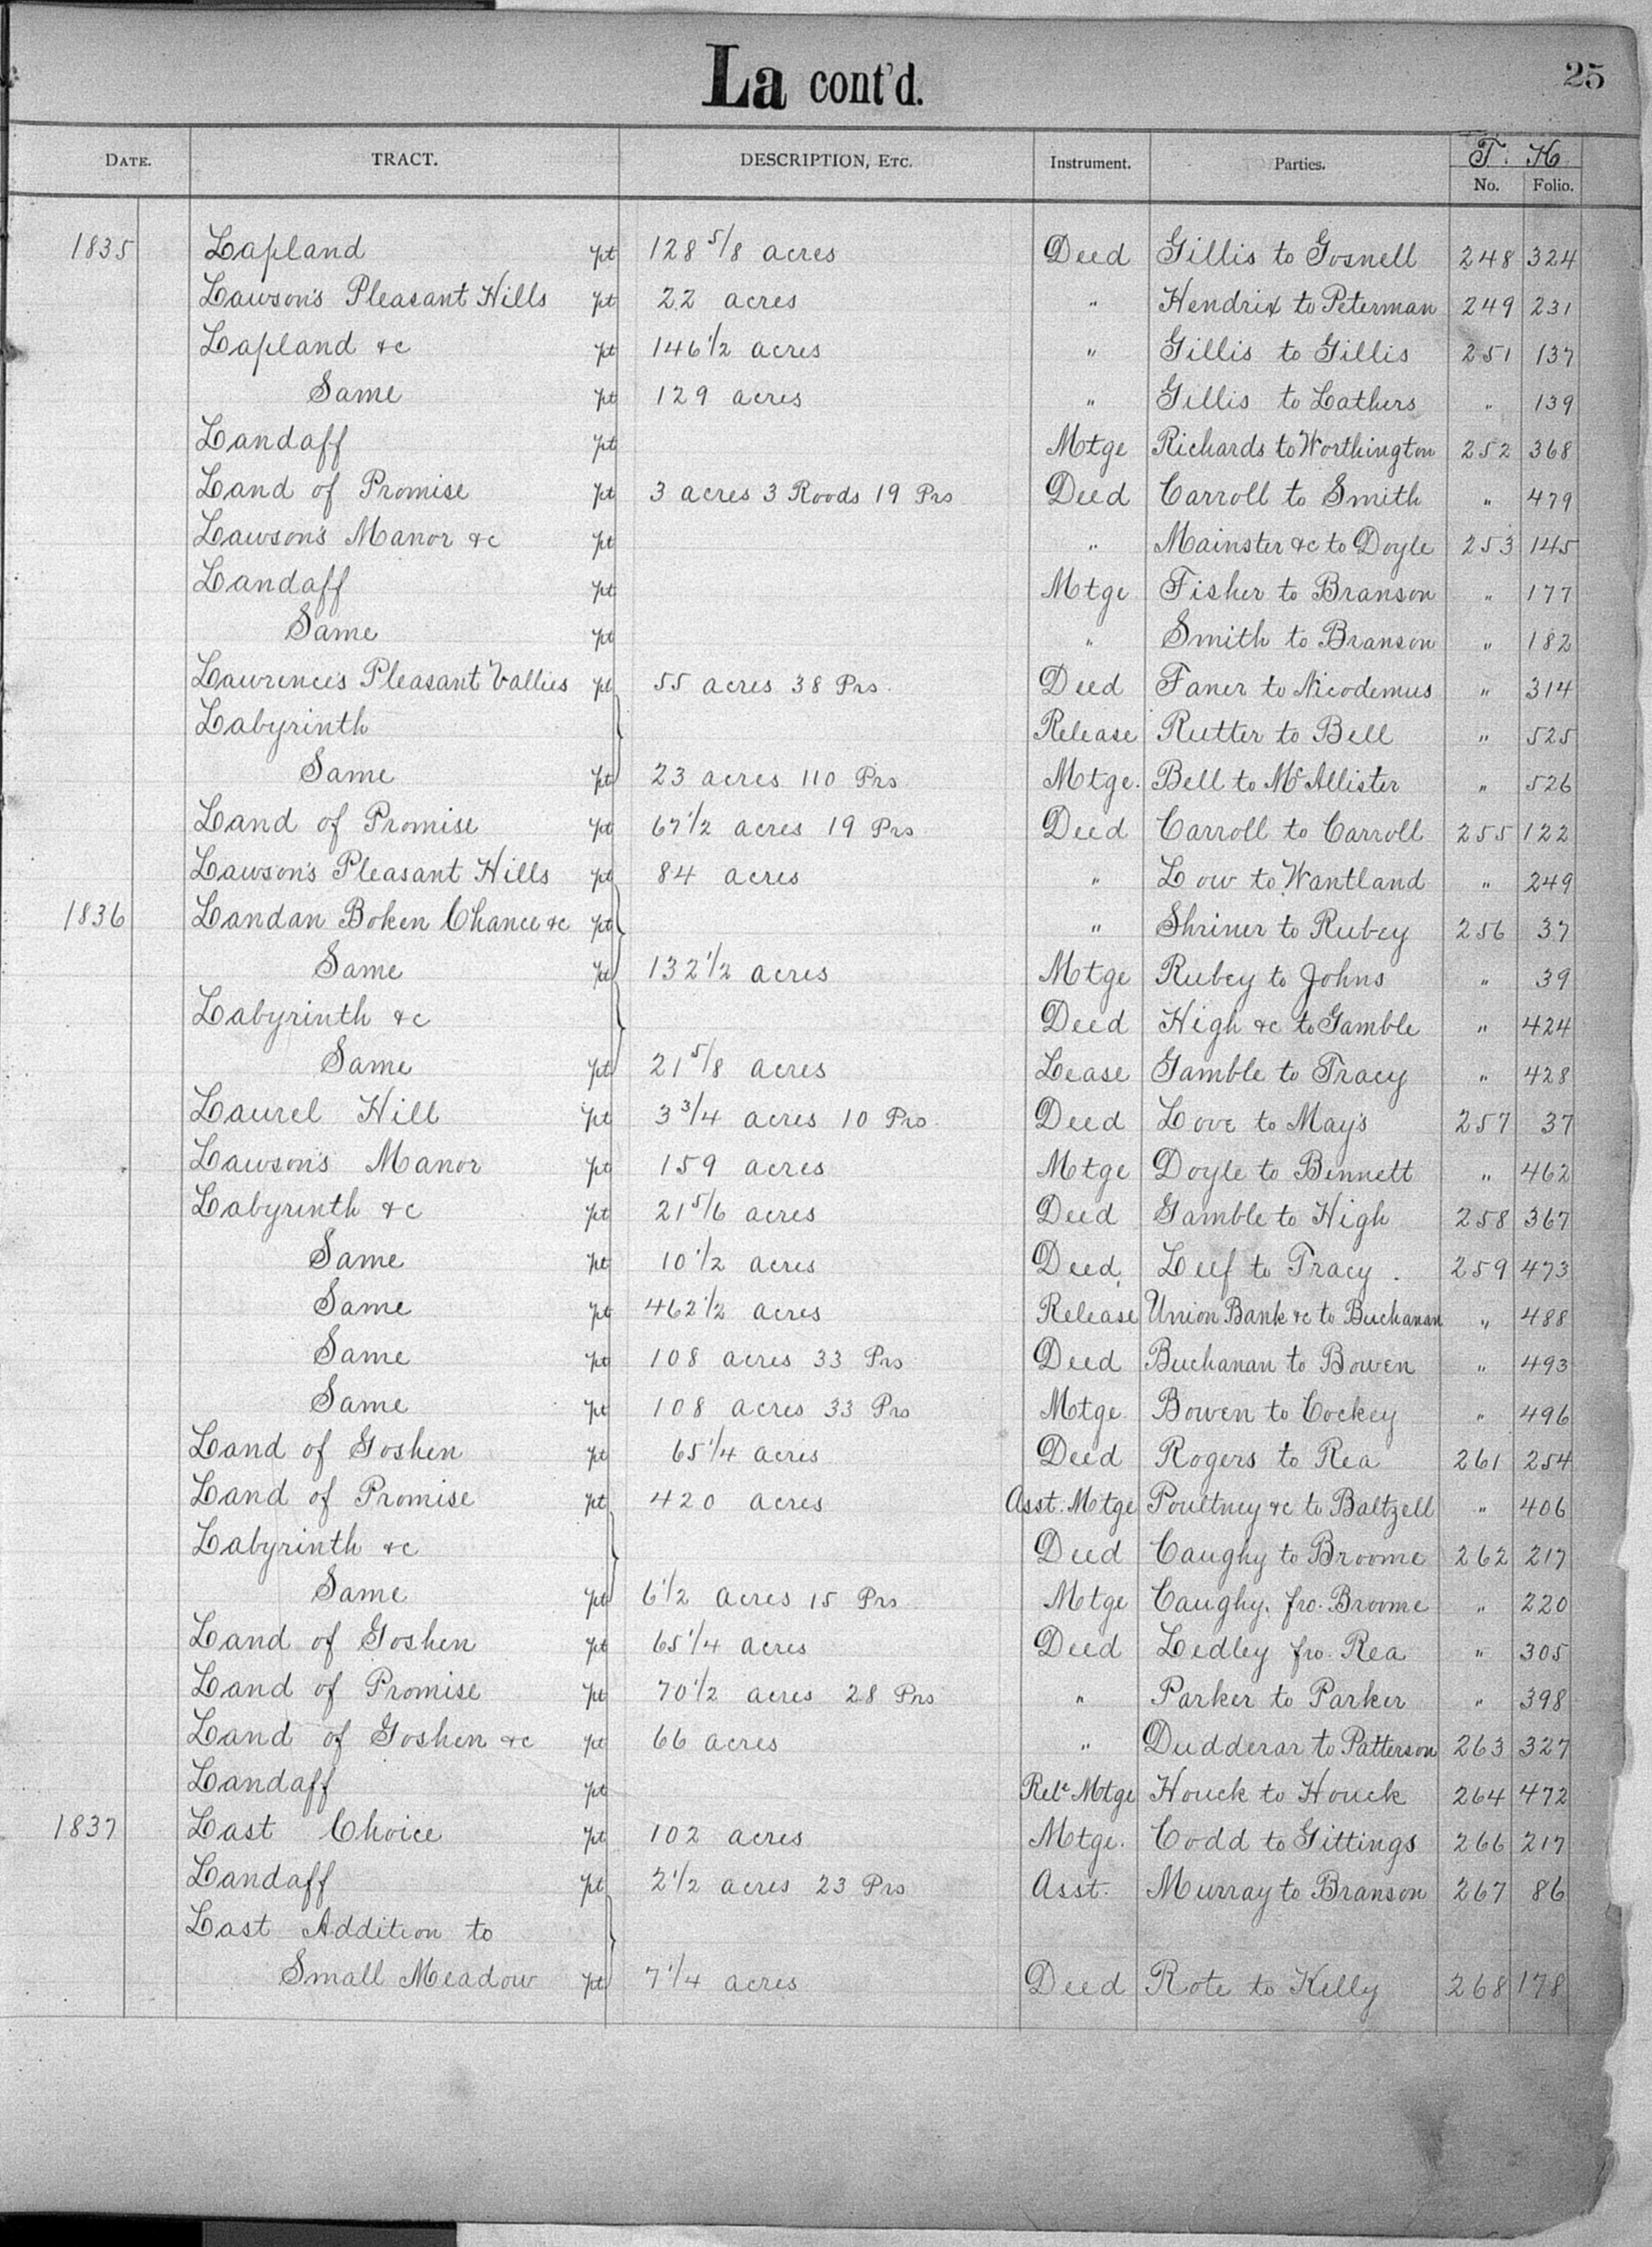 La cont'd.
25
DATE. TRACT. DESCRIPTION, ETC. Instrument. Parties. T. H
No. Folio.
1835 Lapland pt 128 5/8 acres Deed Gillis to Gosnell 248 324
Lawson's Pleasant Hills pt 22 acres " Hendrix to Peterman 249 231
Lapland &c pt 146 1/2 acres " Gillis to Gillis 251 137
Same pt 129 acres " Gillis to Lathers " 139
Landaff pt Mtge Richards to Worthington 252 368
Land of Promise pt 3 acres 3 Roods 19 Prs Deed Carroll to Smith " 479
Lawson's Manor &c pt " Mainster &c to Doyle 253 145
Landaff pt Mtge Fisher to Branson " 177
Same pt " Smith to Branson " 182
Lawrence's Pleasant Vallies pt 55 acres 38 Prs. Deed Faner to Nicodemus " 314
Labyrinth Release Rutter to Bell " 525
Same pt 23 acres 110 Prs Mtge. Bell to McAllister " 526
Land of Promise pt 67 1/2 acres 19 Prs Deed Carroll to Carroll 255 122
Lawson's Pleasant Hills pt 84 acres " Low to Wantland " 249
1836 Landan Boken Chance &c pt " Shriner to Rubey 256 37
Same pt 132 1/2 acres Mtge Rubey to Johns " 39
Labyrinth &c Deed High &c to Gamble " 424
Same pt 21 5/8 acres Lease Gamble to Tracy " 428
Laurel Hill pt 3 3/4 acres 10 Prs. Deed Love to May's 257 37
Lawson's Manor pt 159 acres Mtge Doyle to Bennett " 462
Labyrinth &c pt 21 5/6 acres Deed Gamble to High 258 367
Same pt 10 1/2 acres Deed Leef to Tracy. 259 473
Same pt 462 1/2 acres Release Union Bank &c to Buchanan " 488
Same pt 108 acres 33 Prs Deed Buchanan to Bowen " 493
Same pt 108 acres 33 Prs Mtge Bowen to Cockey " 496
Land of Goshen pt 65 1/4 acres Deed Rogers to Rea 261 254
Land of Promise pt 420 acres Asst. Mtge Poultney &c to Baltzell " 406
Labyrinth &c Deed Caughy to Broome 262 217
Same pt 6 1/2 acres 15 Prs Mtge Caughy. fro. Broome " 220
Land of Goshen pt 65 1/4 acres Deed Ledley fro. Rea " 305
Land of Promise pt 70 1/2 acres 28 Prs " Parker to Parker " 398
Land of Goshen &c pt 66 acres " Dudderar to Patterson 263 327
Landaff pt Rele Mtge Houck to Houck 264 472
1837 Last Choice pt 102 acres Mtge. Codd to Gittings 266 217
Landaff pt 2 1/2 acres 23 Prs Asst. Murray to Branson 267 86
Last Addition to
Small Meadow pt 7 1/4 acres Deed Rote to Kelly 268 178